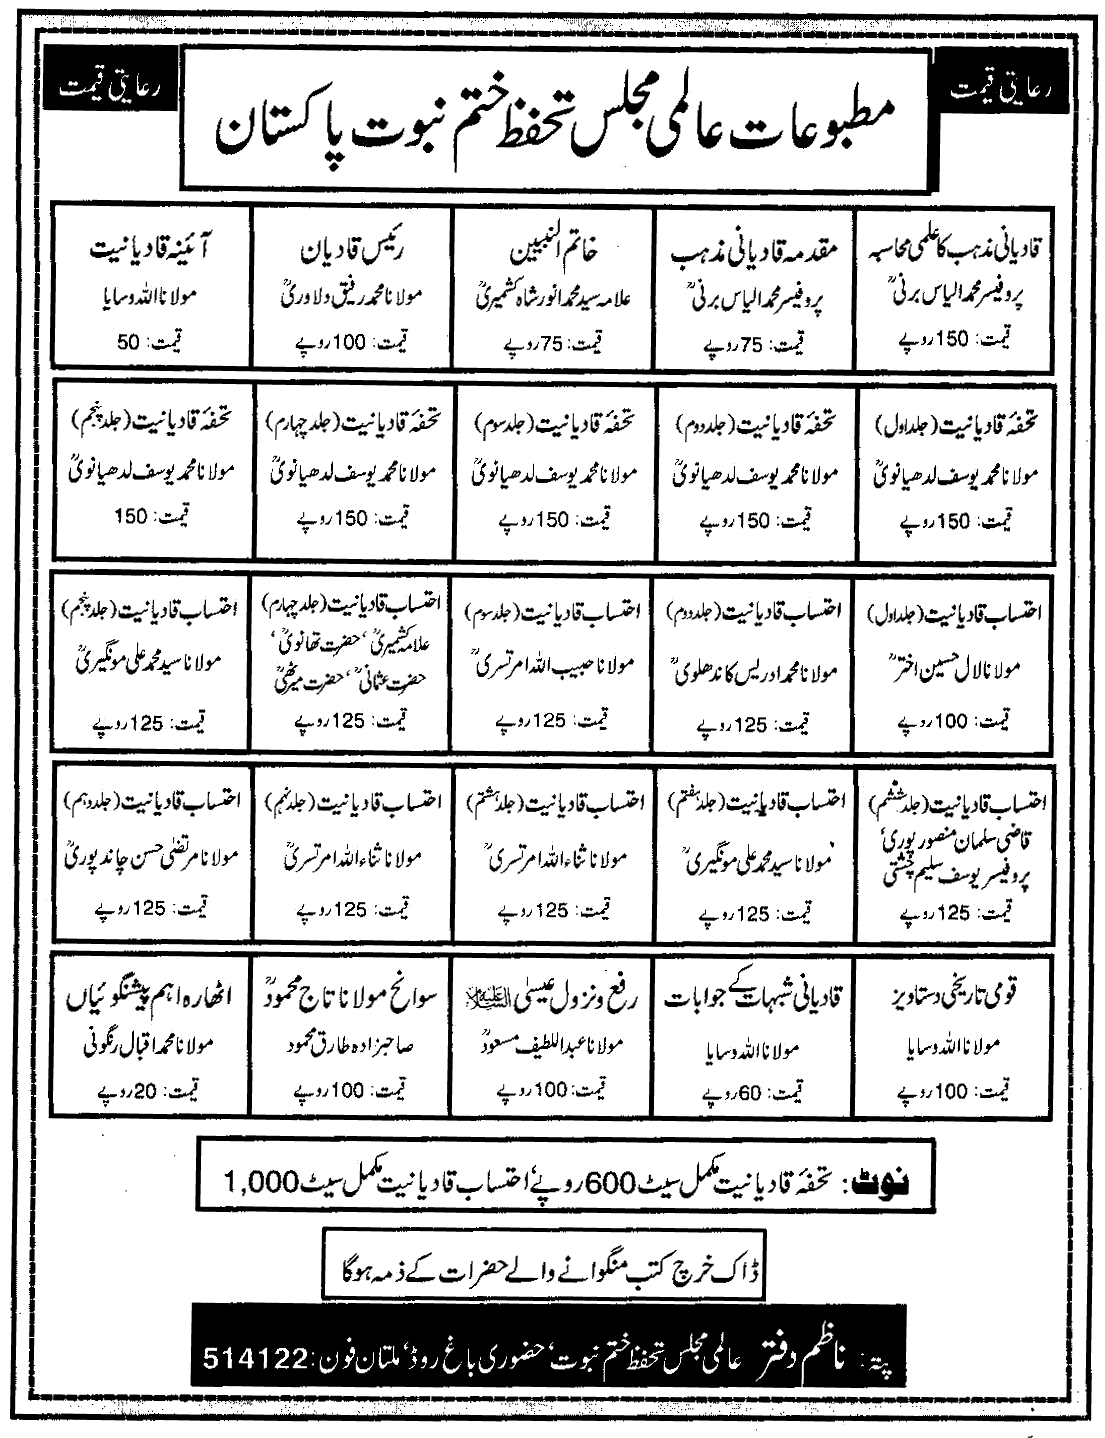 رعایتی قیمت
مطبوعات عالمی مجلس تحفظ ختم نبوت پاکستان
رعایتی قیمت
قادیانی مذہب کا علمی محاسبہ
پروفیسر محمد الیاس برنیؒ
قیمت: 150 روپے
مقدمہ قادیانی مذہب
پروفیسر محمد الیاس برنیؒ
قیمت: 75 روپے
خاتم النبیین
علامہ سید محمد انور شاہ کشمیریؒ
قیمت: 75 روپے
رئیس قادیان
مولانا محمد رفیق دلاوریؒ
قیمت: 100 روپے
آئینہ قادیانیت
مولانا اللہ وسایا
قیمت: 50
تحفۂ قادیانیت (جلد اول)
مولانا محمد یوسف لدھیانویؒ
قیمت: 150 روپے
تحفۂ قادیانیت (جلد دوم)
مولانا محمد یوسف لدھیانویؒ
قیمت: 150 روپے
تحفۂ قادیانیت (جلد سوم)
مولانا محمد یوسف لدھیانویؒ
قیمت: 150 روپے
تحفۂ قادیانیت (جلد چہارم)
مولانا محمد یوسف لدھیانویؒ
قیمت: 150 روپے
تحفۂ قادیانیت (جلد پنجم)
مولانا محمد یوسف لدھیانویؒ
قیمت: 150
احتساب قادیانیت (جلد اول)
مولانا لال حسین اخترؒ
قیمت: 100 روپے
احتساب قادیانیت (جلد دوم)
مولانا محمد ادریس کاندھلویؒ
قیمت: 125 روپے
احتساب قادیانیت (جلد سوم)
مولانا حبیب اللہ امرتسریؒ
قیمت: 125 روپے
احتساب قادیانیت (جلد چہارم)
علامہ کشمیریؒ، حضرت تھانویؒ،
حضرت عثمانیؒ، حضرت میرٹھیؒ
قیمت: 125 روپے
احتساب قادیانیت (جلد پنجم)
مولانا سید محمد علی مونگیریؒ
قیمت: 125 روپے
احتساب قادیانیت (جلد ششم)
قاضی سلمان منصور پوریؒ
پروفیسر یوسف سلیم چشتیؒ
قیمت: 125 روپے
احتساب قادیانیت (جلد ہفتم)
مولانا سید محمد علی مونگیریؒ
قیمت: 125 روپے
احتساب قادیانیت (جلد ہشتم)
مولانا ثناء اللہ امرتسریؒ
قیمت: 125 روپے
احتساب قادیانیت (جلد نہم)
مولانا ثناء اللہ امرتسریؒ
قیمت: 125 روپے
احتساب قادیانیت (جلد دہم)
مولانا مرتضیٰ حسن چاند پوریؒ
قیمت: 125 روپے
قومی تاریخی دستاویز
مولانا اللہ وسایا
قیمت: 100 روپے
قادیانی شبہات کے جوابات
مولانا اللہ وسایا
قیمت: 60 روپے
رفع و نزول عیسیٰ علیہ السلام
مولانا عبداللطیف مسعودؒ
قیمت: 100 روپے
سوانح مولانا تاج محمودؒ
صاحبزادہ طارق محمود
قیمت: 100 روپے
اٹھارہ اہم پیشنگوئیاں
مولانا محمد اقبال رنگونی
قیمت: 20 روپے
نوٹ: تحفۂ قادیانیت مکمل سیٹ 600 روپے، احتساب قادیانیت مکمل سیٹ 1,000
ڈاک خرچ کتب منگوانے والے حضرات کے ذمہ ہوگا
پتہ: ناظم دفتر عالمی مجلس تحفظ ختم نبوت، حضوری باغ روڈ، ملتان فون: 514122